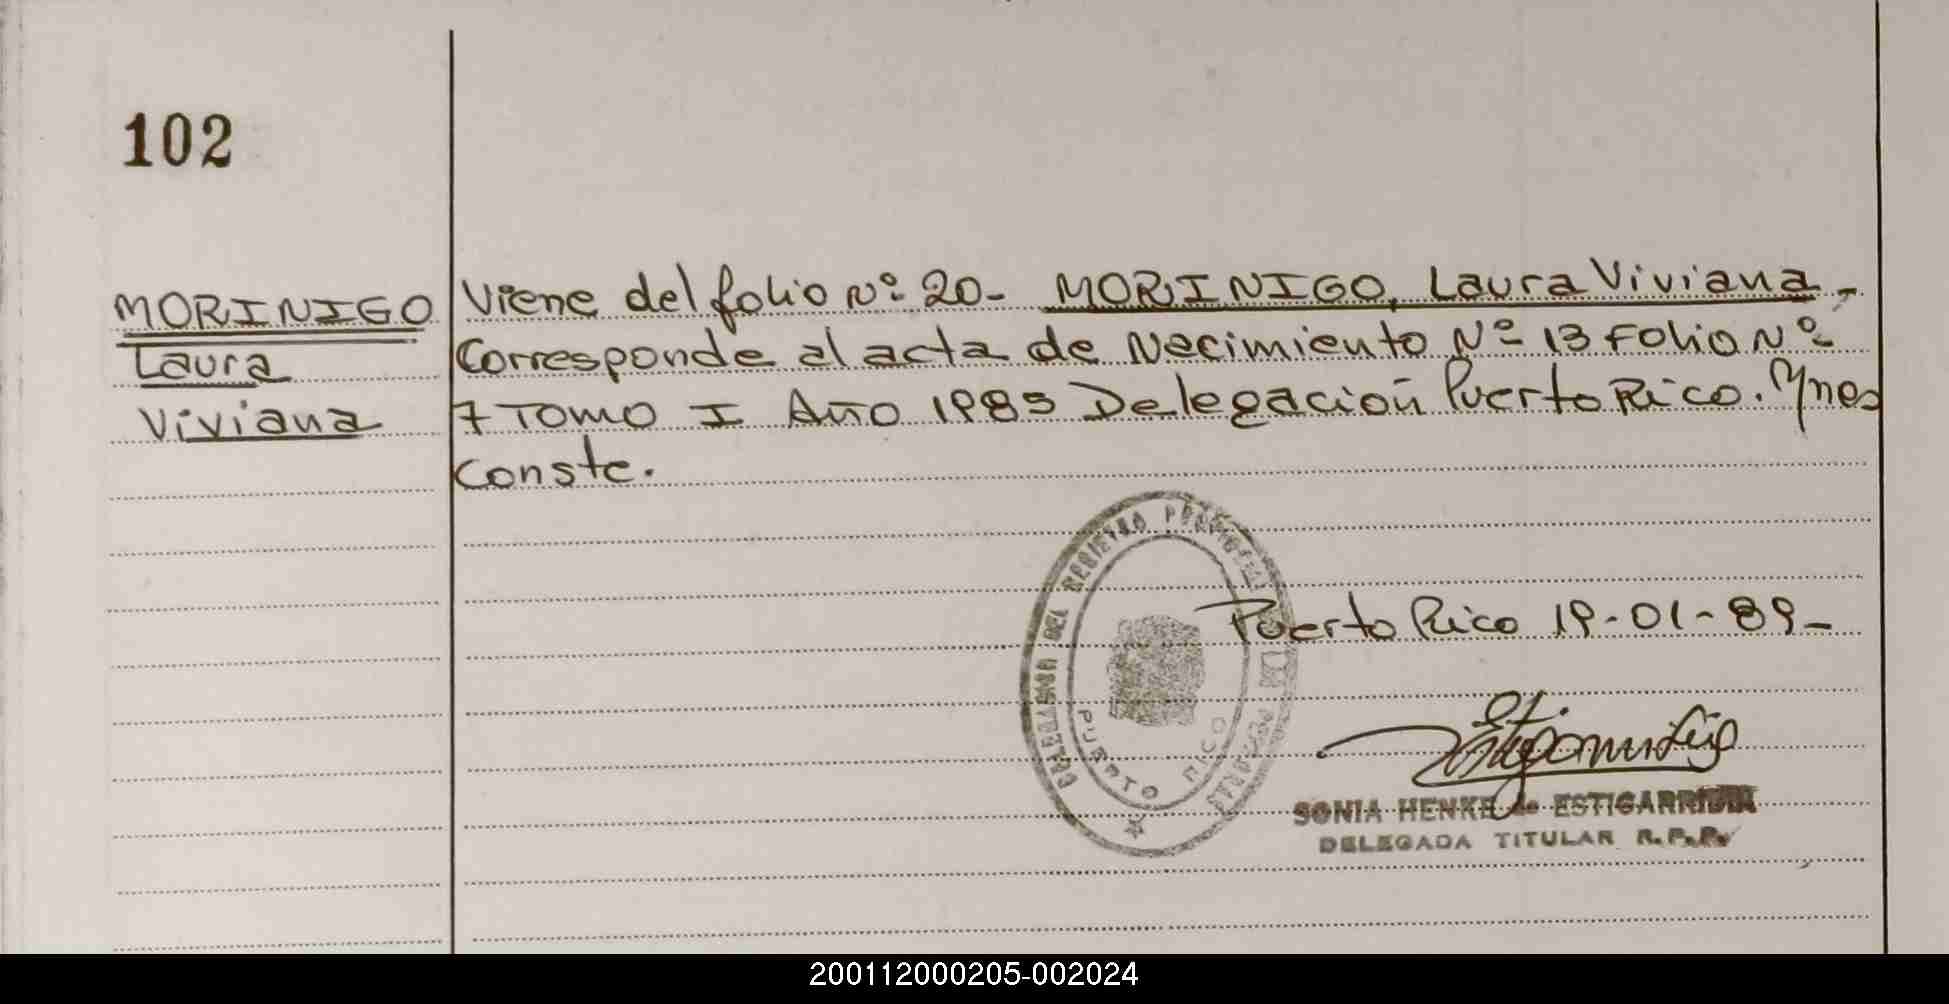 102
MORINIGO
Laura
Viviana
Viene del folio Nº 20- MORINIGO, Laura Viviana-
Corresponde al acta de Necimiento Nº 13 Folio Nº
7 Tomo I Año 1985 Delegación Puerto Rico.
Conste.
DELEGACION DEL REGISTRO PROVINCIAL DE LAS PERSONAS
PUERTO RICO
Puerto Rico 19-01-89-
SONIA HENKE de ESTIGARRIBIA
DELEGADA TITULAR R.P.P.
200112000205-002024